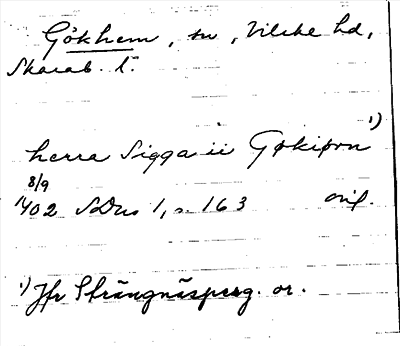 Gökhem, sn, Vilske hd,
Skarab. l.
herra Sigga ii Gøkipn 1)
8/9
1402 SDns 1, s. 163 orig.
1) Jfr Strängnäsperg. or.